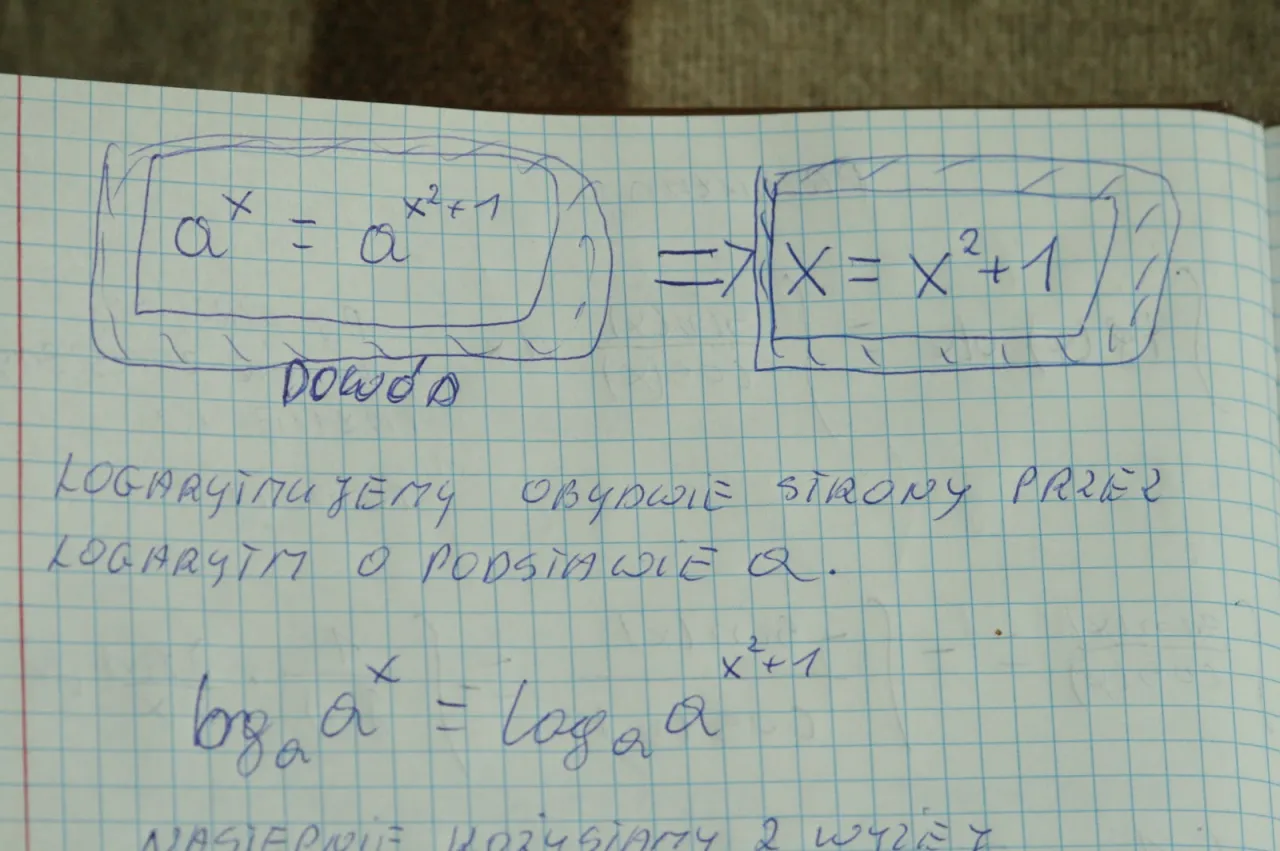 a^x = a^{x^2+1} => x = x^2+1
DOWÓD
LOGARYTMUJEMY OBYDWIE STRONY PRZEZ
LOGARYTM O PODSTAWIE a.
log_a a^x = log_a a^{x^2+1}
NASTEPNIE KOZYSTAMY Z WYŻEJ